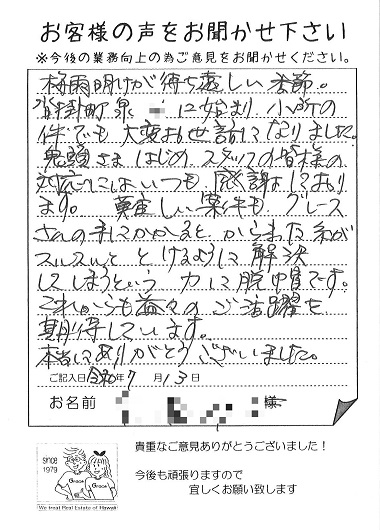 お客様の声をお聞かせ下さい
※今後の業務向上の為ご意見をお聞かせください。
梅雨明けが待ち遠しい季節。
沓掛町泉 に始まり 小所の
件でも 大変お世話になりました。
鬼頭さま はじめ、スタッフの皆様の
対応にはいつも 感謝しており
ます。 難しい案件も グレース
さんの手にかかると、からまた糸が
スルスルと とけるように 解決
してしまうという 力に脱帽です。
これからも益々の ご活躍を
期待しています。
本当にありがとう ございました。
ご記入日 令和 7 月 13 日
お名前 様
貴重なご意見ありがとうございました！
今後も頑張りますので
宜しくお願い致します
since
1979
Grace
Grace
We treat Real Estate of Hawaii